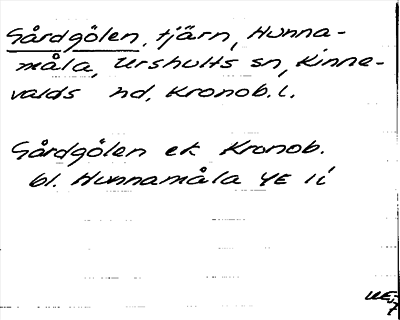 Gårdgölen, tjärn, Hunna-
måla, Urshults sn, Kinne-
valds hd, Kronob. l.
Gårdgölen ek Kronob.
bl. Hunnamåla YE 1i